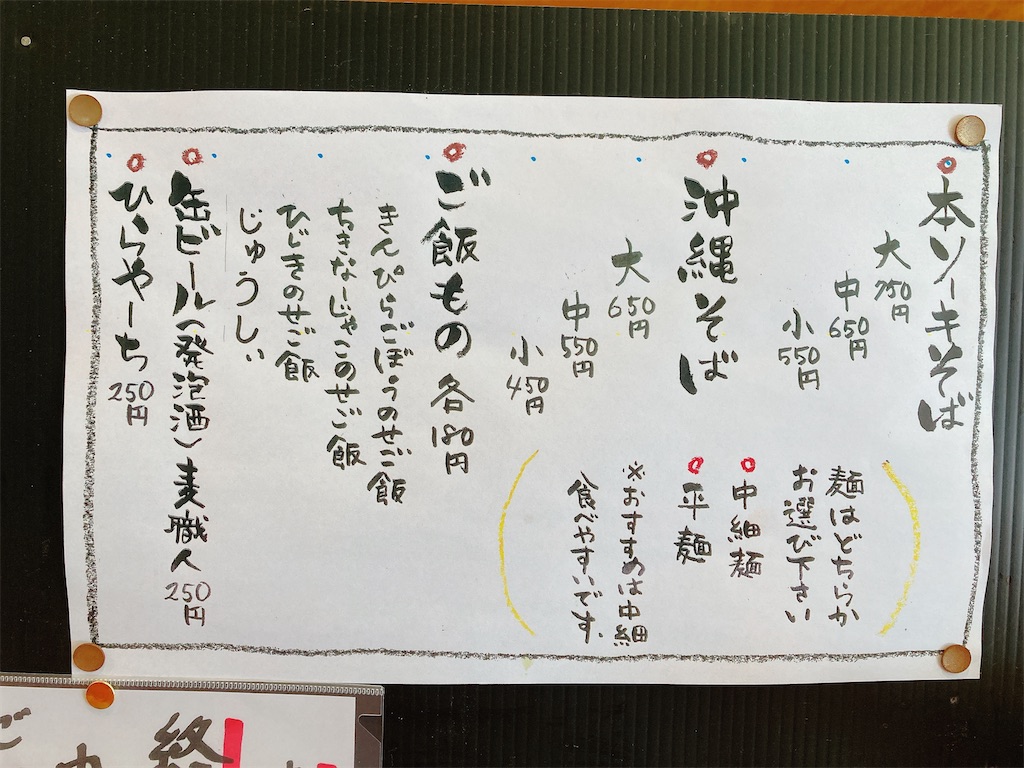 本ソーキそば
大 750円
中 650円
小 550円
麺はどちらか
お選び下さい
中細麺
平麺
※おすすめは中細
食べやすいです。
沖縄そば
大 650円
中 550円
小 450円
ご飯もの 各180円
きんぴらごぼうのせご飯
ちきなーじゃこのせご飯
ひじきのせご飯
じゅうしぃ
缶ビール(発泡酒)麦職人 250円
ひらやーち 250円
終
ご